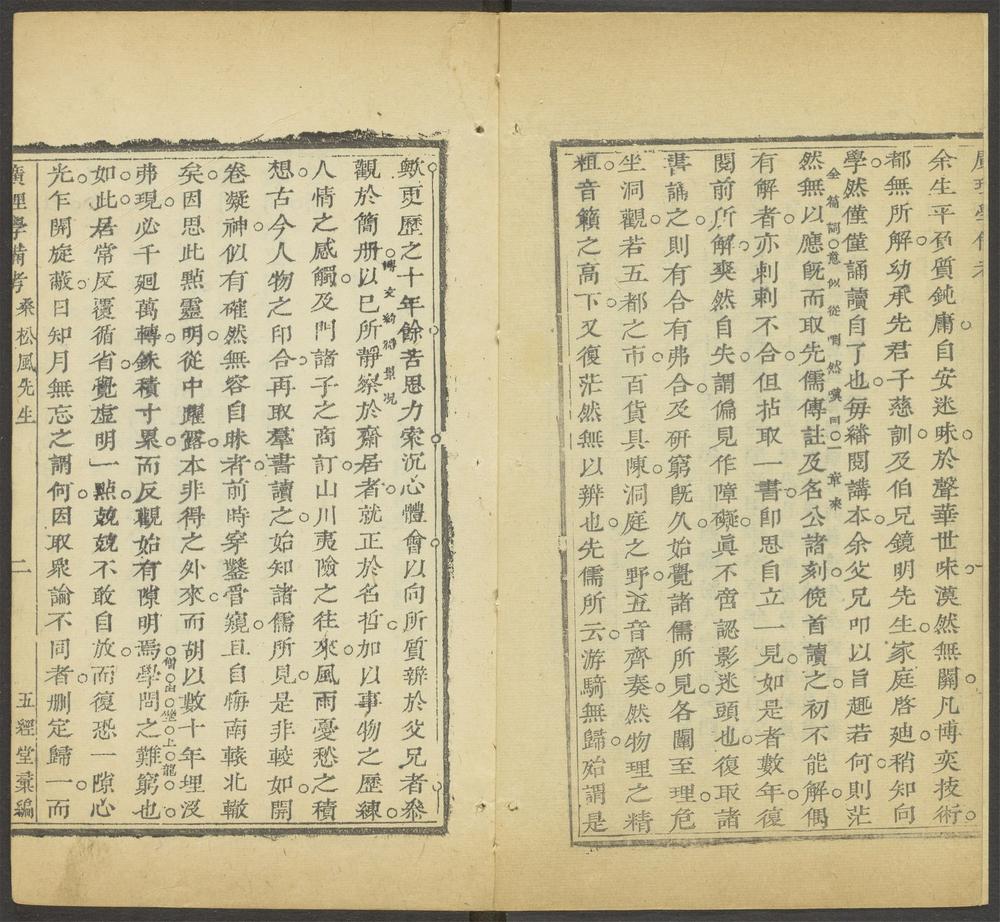 廣理學備考
余生平負質鈍庸自安迷昧於聲華世味漠然無關凡博奕技術
都無所解幼承先君子慈訓及伯兄鏡明先生家庭啓迪稍知向
學然僅僅誦讀自了也每繙閱講本余父兄叩以旨趣若何則茫
全篇詞意似從喟然嘆曰一章來
然無以應旣而取先儒傳註及名公諸刻俛首讀之初不能解偶
有解者亦剌剌不合但拈取一書卽思自立一見如是者數年復
閱前所解爽然自失謂偏見作障礙眞不啻認影迷頭也復取諸
書誦之則有合有弗合及研窮旣久始覺諸儒所見各闡至理危
坐洞觀若五都之市百貨具陳洞庭之野五音齊奏然物理之精
粗音籟之高下又復茫然無以辨也先儒所云游騎無歸殆謂是
歟更歷之十年餘苦思力索沉心體會以向所質辨於父兄者叅
博文約禮景况
觀於簡册以已所靜察於齋居者就正於名哲加以事物之歷練
人情之感觸及門諸子之商訂山川夷險之往來風雨憂愁之積
想古今人物之印合再取羣書讀之始知諸儒所見是非較如開
卷凝神似有確然無容自昧者前時穿鑿管窺且自悔南轅北轍
矣因思此㸃靈明從中曜露本非得之外來而胡以數十年埋沒
僧由坐上龍
弗現必千廻萬轉銖積寸累而反觀始有隙明焉學問之難窮也
如此居常反覆循省覺虛明一㸃兢兢不敢自放而復恐一隙心
光乍開旋蔽日知月無忘之謂何因取衆論不同者刪定歸一而
廣理學備考 桑松風先生 二 五經堂彙編